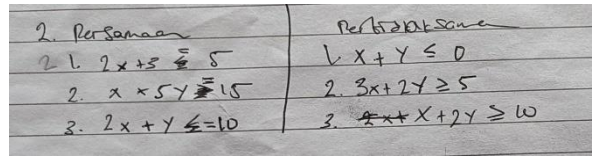 2. Persamaan
2 1. 2x + 3 = 5
2. x x 5y = 15
3. 2x + y = 10
Pertidaksamaan
1. x + y ≤ 0
2. 3x + 2y ≥ 5
3. x + 2y ≥ 10